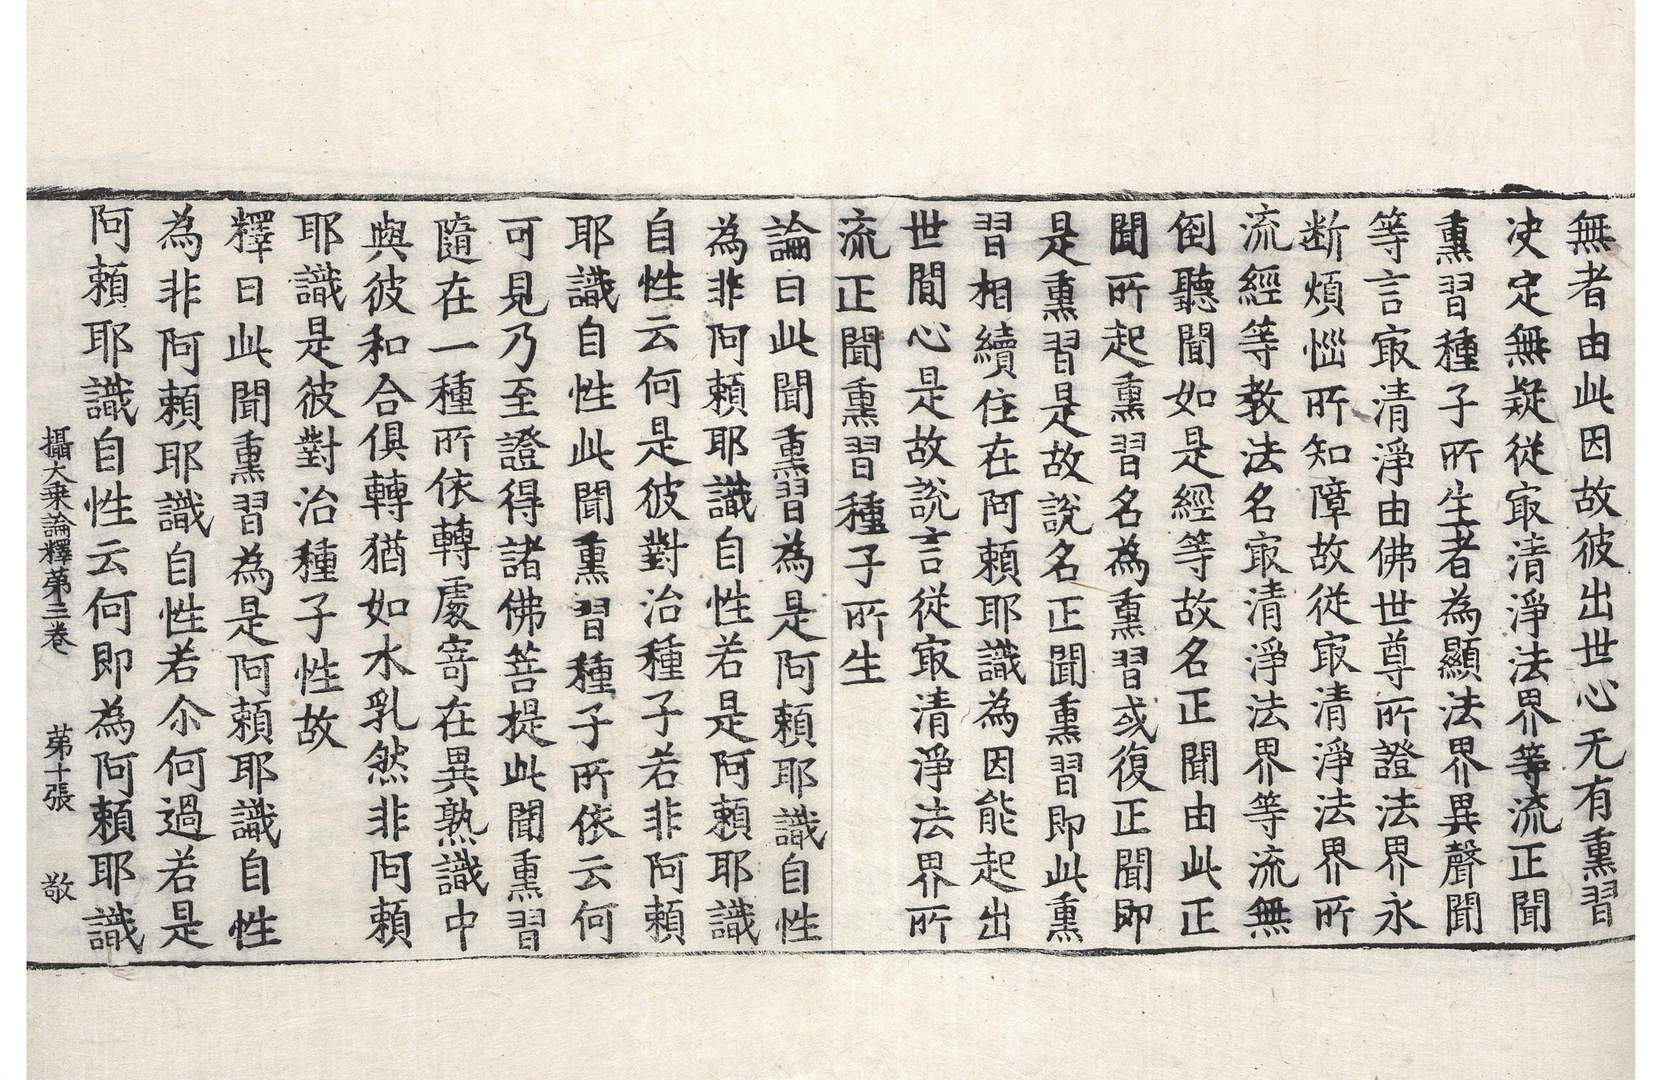 無者由此因故彼出世心无有熏習
决定無疑從㝡清淨法界等流正聞
熏習種子所生者為顯法界異聲聞
等言㝡清淨由佛世尊所證法界永
断煩惱所知障故從㝡清淨法界所
流經等教法名㝡清淨法界等流無
倒聽聞如是經等故名正聞由此正
聞所起熏習名為熏習或復正聞即
是熏習是故說名正聞熏習即此熏
習相續住在阿賴耶識為因能起出
世間心是故說言從㝡清淨法界所
流正聞熏習種子所生
論曰此聞熏習為是阿賴耶識自性
為非阿賴耶識自性若是阿賴耶識
自性云何是彼對治種子若非阿賴
耶識自性此聞熏習種子所依云何
可見乃至證得諸佛菩提此聞熏習
隨在一種所依轉處寄在異熟識中
與彼和合俱轉猶如水乳然非阿賴
耶識是彼對治種子性故
釋曰此聞熏習為是阿賴耶識自性
為非阿賴耶識自性若尒何過若是
阿賴耶識自性云何即為阿賴耶識
攝大乘論釋第三卷 第十張 敬